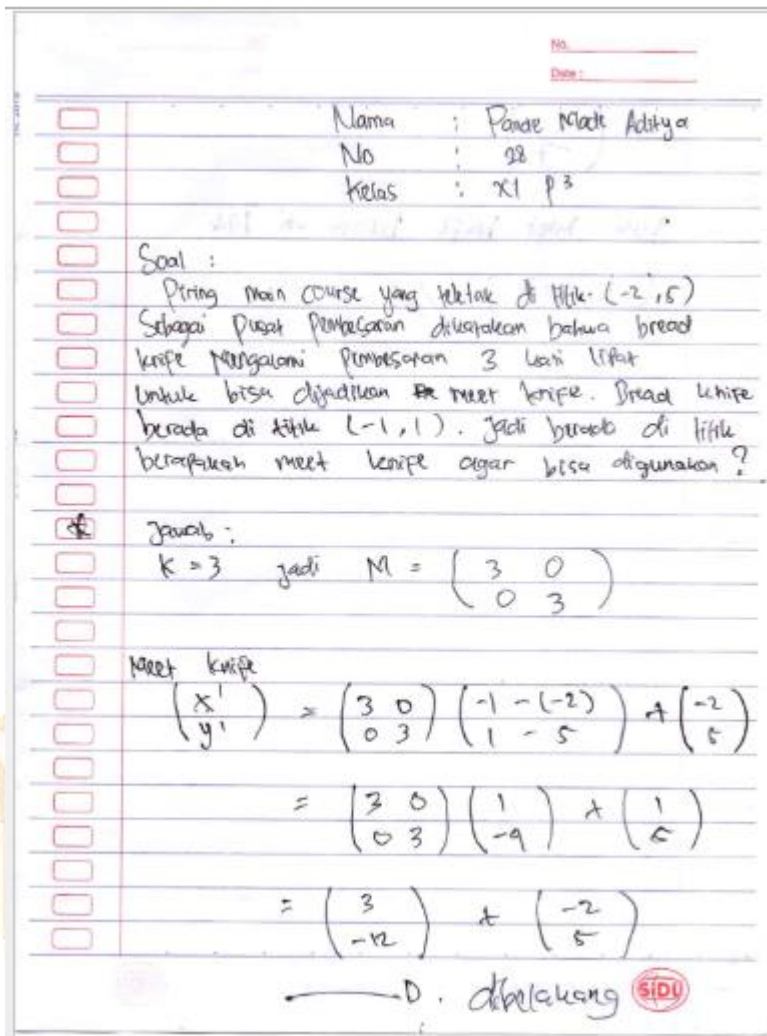 No.
Date :
Nama : Pande Made Aditya
No : 28
Kelas : XI P3
Soal :
Piring main course yang teletak di titik (-2, 5)
Sebagai Pusat Pembesaran dikatakan bahwa bread
knife Mengalami Pembesaran 3 kali lipat
untuk bisa dijadikan meet knife. Bread knife
berada di titik (-1, 1). Jadi berada di titik
berapakah meet knife agar bisa digunakan?
Jawab :
K = 3 jadi M = ( 3 0
0 3 )
Meet knife
( x' ) = ( 3 0 ) ( -1 - (-2) ) + ( -2 )
( y' ) ( 0 3 ) ( 1 - 5 ) ( 5 )
= ( 3 0 ) ( 1 ) + ( 1 )
( 0 3 ) ( -4 ) ( 5 )
= ( 3 ) + ( -2 )
( -12 ) ( 5 )
dibelakang SIDU